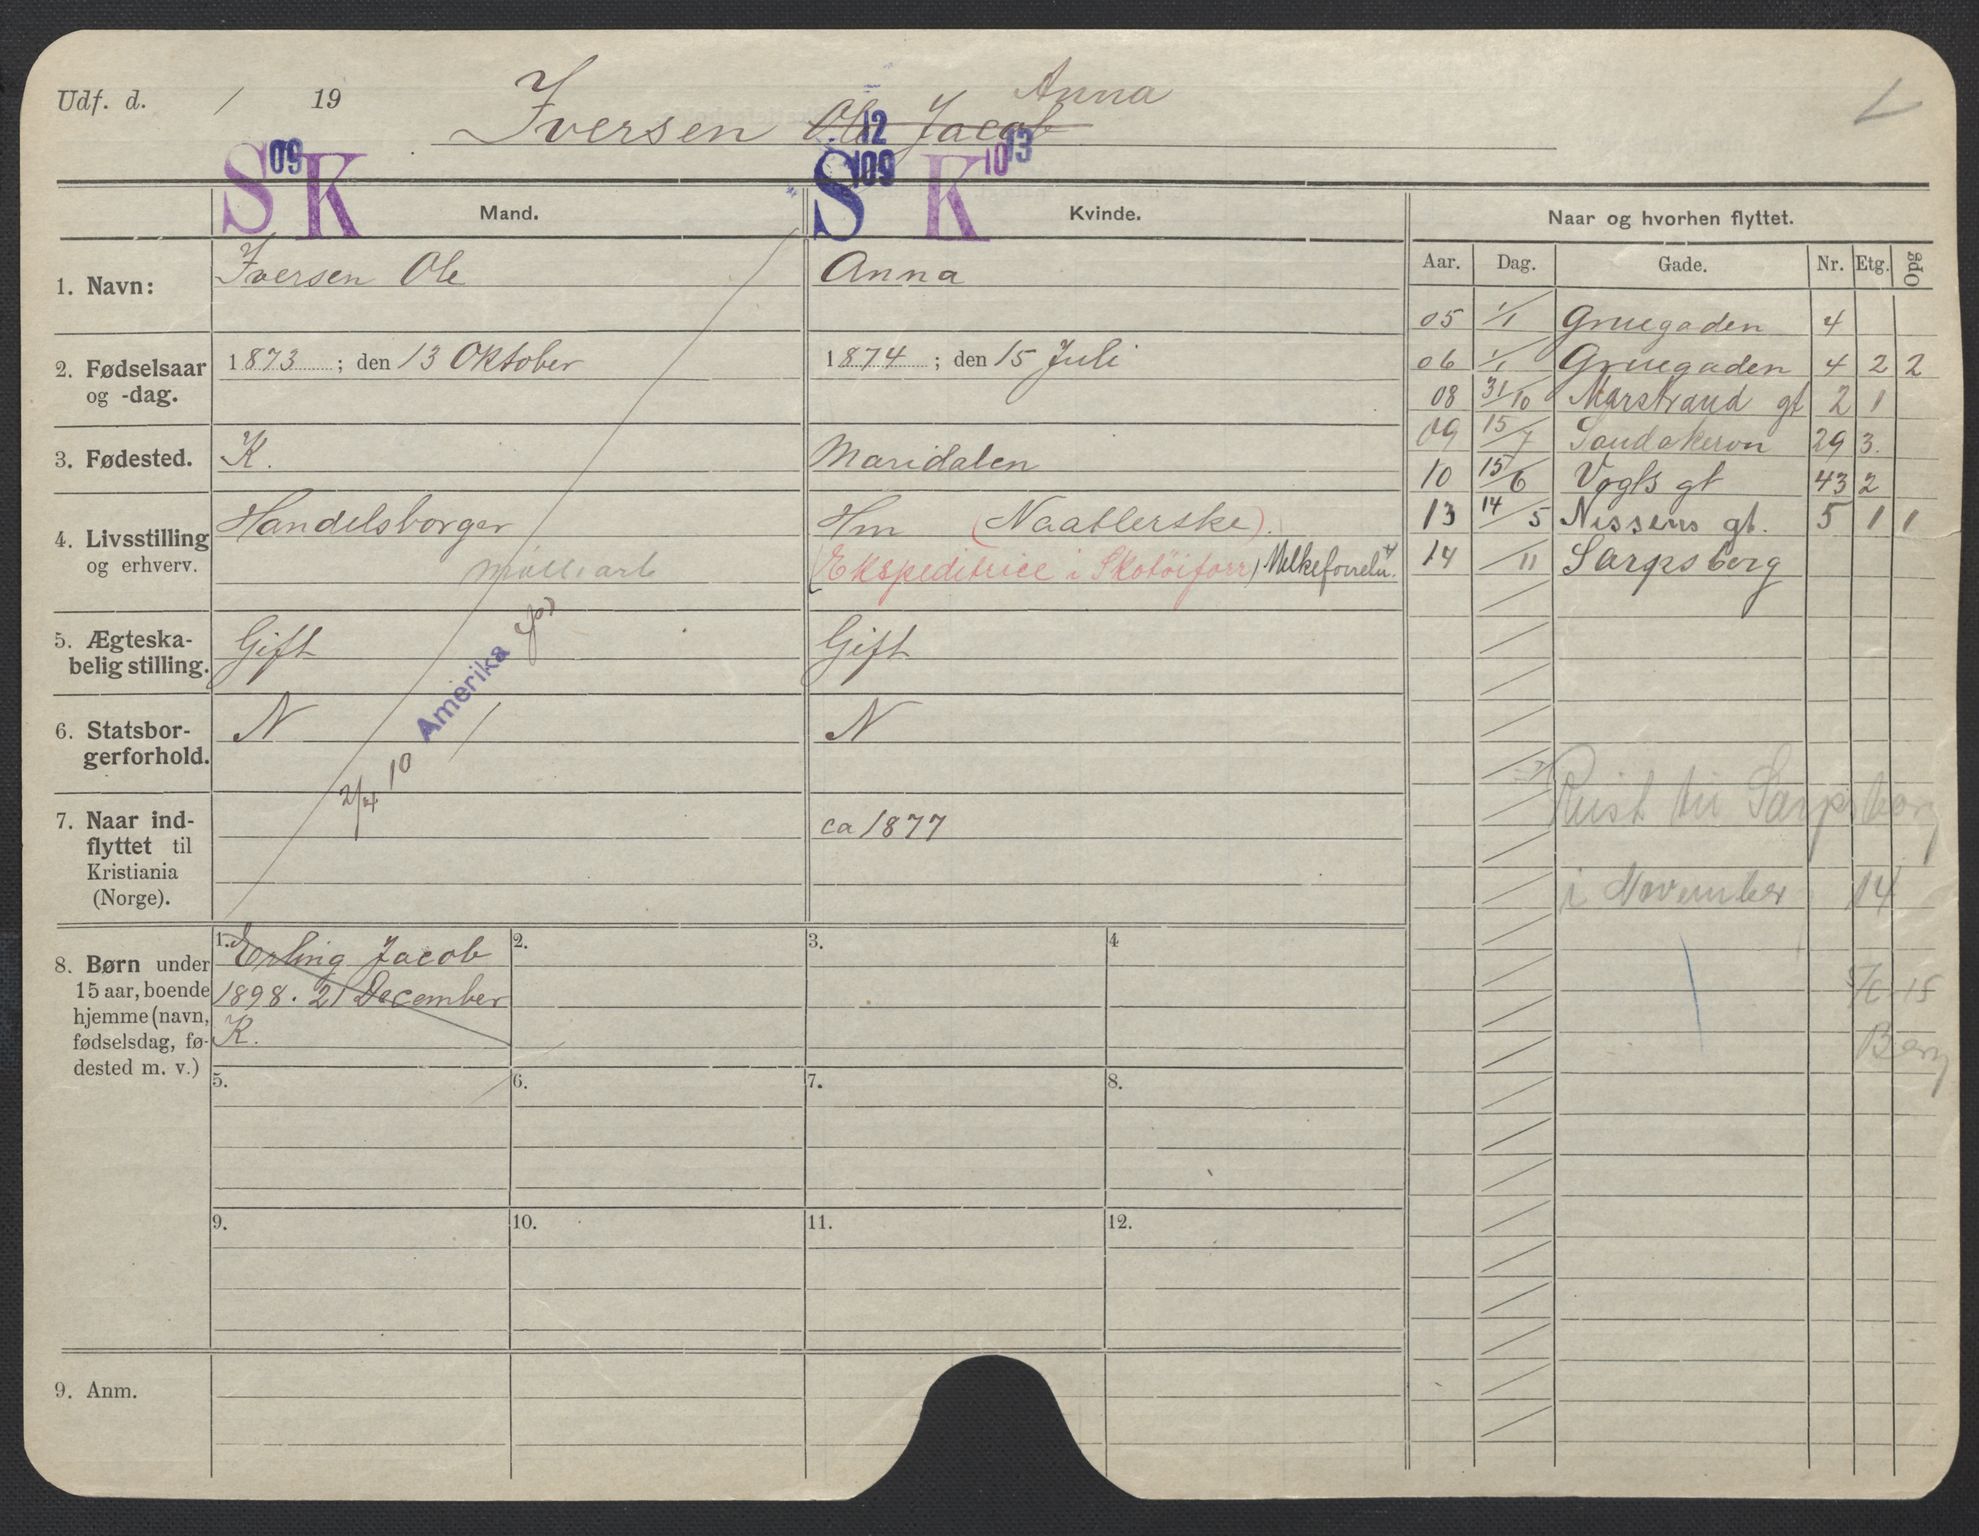 Udf. d. / 19
Anna
Iversen Ole Jacob
S 09 K
12
S 109 K 10 13
Mand.
Kvinde.
Naar og hvorhen flyttet.
Aar. Dag. Gade. Nr. Etg. Opg
1. Navn:
Iversen Ole
Anna
2. Fødselsaar
og -dag.
1873 ; den 13 Oktober
1874 ; den 15 Juli
3. Fødested.
K.
Maridalen
4. Livsstilling
og erhverv.
Handelsborger
Hm (Naatlerske).
(Ekspeditrice i Skotøiforr)
5. Ægteska-
belig stilling.
Gift
Gift
6. Statsbor-
gerforhold.
N
N
Amerika
2/4 10
7. Naar ind-
flyttet til
Kristiania
(Norge).
ca 1877
8. Børn under
15 aar, boende
hjemme (navn,
fødselsdag, fø-
dested m. v.)
1. Erling Jacob
1898. 21 December
K.
2.
3.
4
5.
6.
7.
8.
9.
10.
11.
12.
9. Anm.
05 1/1 Gruegaden 4
06 1/1 Gruegaden 4 2 2
08 31/10 Marstrand gt 2 1
09 15/7 Sandakervn 29 3.
10 15/6 Vogts gt 43 2
13 14/5 Nissens gt. 5 1 1
14 /11 Sarpsborg
Reist til Sarpsborg
i November 14
15
Berg